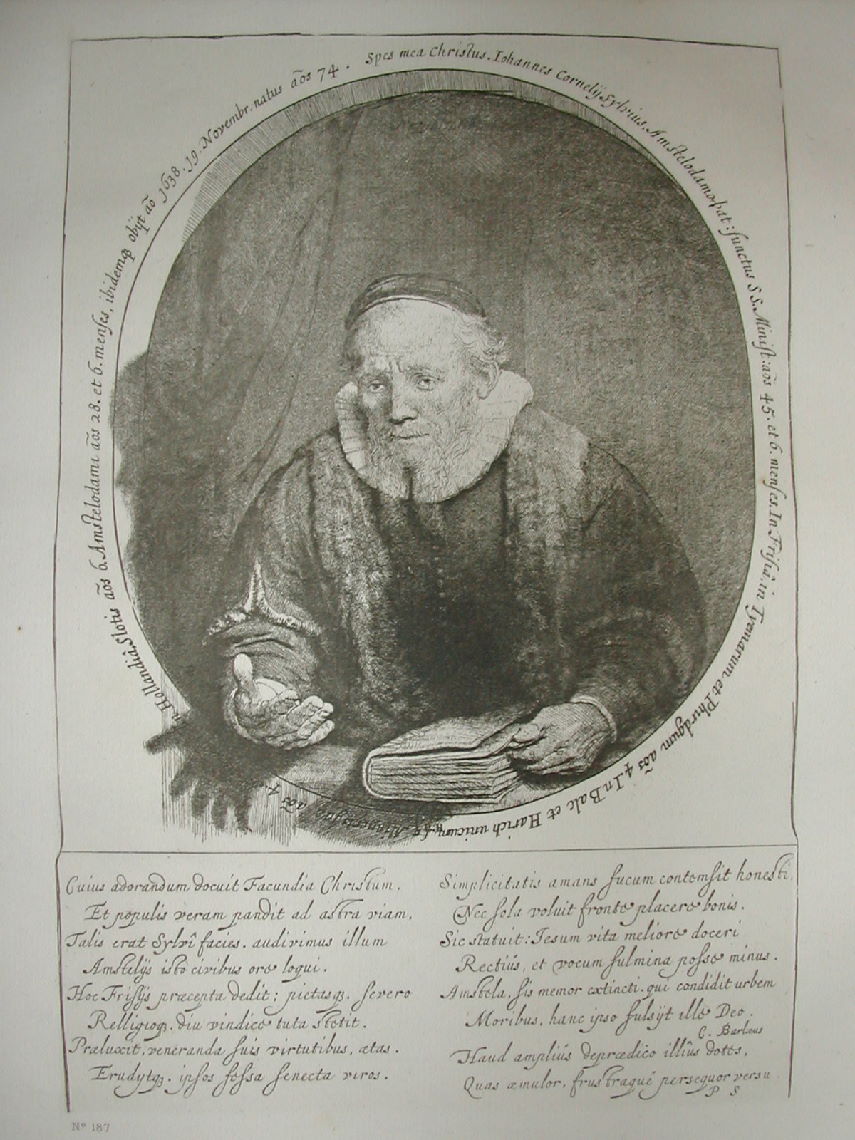 Spes mea Christus. Iohannes Cornely Sylvius, Amstelodamo bat: functus S.S. Minist: aõs 45. et 6. menses. In Frisiâ, in Tyemarum et Phirdgum aõs 4. In Balc et Harich unicum, in Minnertsga aõs 4. in Hollandia, Slotis aõs 6. Amstelodami aõs 28. et 6. menses, ibidemq obijt aõ 1638. 19 Novembr. natus aõs 74.
Cuius adorandum docuit Facundia Christum,
Et populis veram pandit ad astra viam,
Talis erat Sylvî facies. audivimus illum
Amstelijs isto civibus ore loqui.
Hoc Frisijs præcepta dedit; pietasq. severo
Relligioq. diu vindice tuta stetit.
Præluxit, veneranda suis virtutibus, ætas.
Erudytq. ipsos fessa senecta viros.
Simplicitatis amans fucum contemsit honesti,
Nec sola voluit fronte placere bonis.
Sic statuit: Iesum vita meliore doceri
Rectiùs, et vocum fulmina posse minus.
Amstela, sis memor extincti. qui condidit urbem
Moribus, hanc ipso fulsijt ille Deo.
C. Barleus
Haud ampliùs deprædico illîus dotes,
Quas æmulor, frustraque persequor versu
P. S
Nº 187